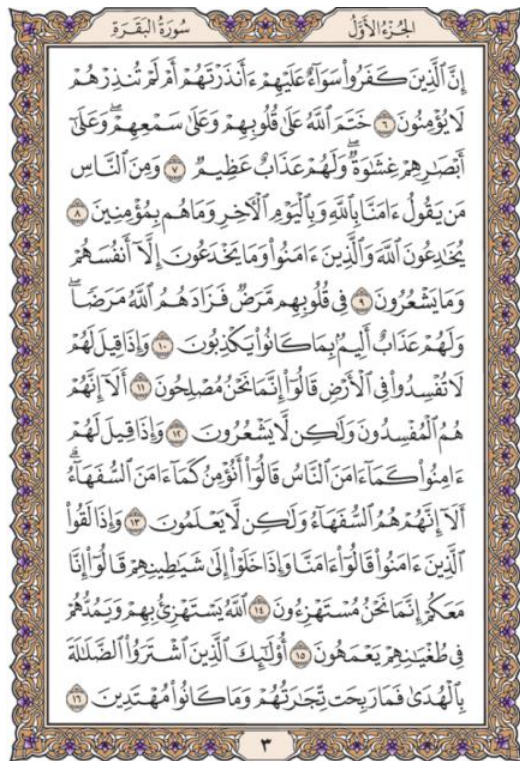 الجُزْءُ الأَوَّلُ
سُورَةُ البَقَرَةِ
إِنَّ ٱلَّذِينَ كَفَرُوا۟ سَوَآءٌ عَلَيْهِمْ ءَأَنذَرْتَهُمْ أَمْ لَمْ تُنذِرْهُمْ
لَا يُؤْمِنُونَ ٦ خَتَمَ ٱللَّهُ عَلَىٰ قُلُوبِهِمْ وَعَلَىٰ سَمْعِهِمْ ۖ وَعَلَىٰٓ
أَبْصَٰرِهِمْ غِشَٰوَةٌ ۖ وَلَهُمْ عَذَابٌ عَظِيمٌ ٧ وَمِنَ ٱلنَّاسِ
مَن يَقُولُ ءَامَنَّا بِٱللَّهِ وَبِٱلْيَوْمِ ٱلْأَخِرِ وَمَا هُم بِمُؤْمِنِينَ ٨
يُخَٰدِعُونَ ٱللَّهَ وَٱلَّذِينَ ءَامَنُوا۟ وَمَا يَخْدَعُونَ إِلَّآ أَنفُسَهُمْ
وَمَا يَشْعُرُونَ ٩ فِى قُلُوبِهِم مَّرَضٌ فَزَادَهُمُ ٱللَّهُ مَرَضًا ۖ
وَلَهُمْ عَذَابٌ أَلِيمٌۢ بِمَا كَانُوا۟ يَكْذِبُونَ ١٠ وَإِذَا قِيلَ لَهُمْ
لَا تُفْسِدُوا۟ فِى ٱلْأَرْضِ قَالُوٓا۟ إِنَّمَا نَحْنُ مُصْلِحُونَ ١١ أَلَآ إِنَّهُمْ
هُمُ ٱلْمُفْسِدُونَ وَلَٰكِن لَّا يَشْعُرُونَ ١٢ وَإِذَا قِيلَ لَهُمْ
ءَامِنُوا۟ كَمَآ ءَامَنَ ٱلنَّاسُ قَالُوٓا۟ أَنُؤْمِنُ كَمَآ ءَامَنَ ٱلسُّفَهَآءُ ۗ
أَلَآ إِنَّهُمْ هُمُ ٱلسُّفَهَآءُ وَلَٰكِن لَّا يَعْلَمُونَ ١٣ وَإِذَا لَقُوا۟
ٱلَّذِينَ ءَامَنُوا۟ قَالُوٓا۟ ءَامَنَّا وَإِذَا خَلَوْا۟ إِلَىٰ شَيَٰطِينِهِمْ قَالُوٓا۟ إِنَّا
مَعَكُمْ إِنَّمَا نَحْنُ مُسْتَهْزِءُونَ ١٤ ٱللَّهُ يَسْتَهْزِئُ بِهِمْ وَيَمُدُّهُمْ
فِى طُغْيَٰنِهِمْ يَعْمَهُونَ ١٥ أُو۟لَٰٓئِكَ ٱلَّذِينَ ٱشْتَرَوُا۟ ٱلضَّلَٰلَةَ
بِٱلْهُدَىٰ فَمَا رَبِحَت تِّجَٰرَتُهُمْ وَمَا كَانُوا۟ مُهْتَدِينَ ١٦
٣